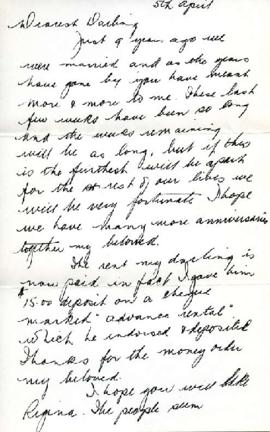 5th April
Dearest Darling
Just 9 years ago we
were married and as the years
have gone by you have meant
more & more to me. These last
few weeks have been so long
and the weeks remaining
will be as long, but if this
is the furthest we'll be apart
for the rest of our lives we
will be very fortunate. I hope
we have many more anniversaries
together my beloved.
The rent my darling is
now paid in fact I gave him
15.00 deposit on a cheque
marked "advance rental"
which he endorsed & deposited
Thanks for the money order
my beloved.
I hope you will like
Regina. The people seem